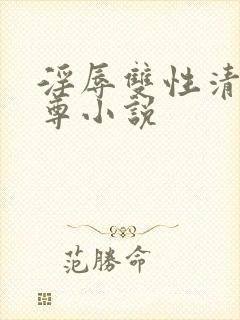 淫辱雙性清
尊小說
范勝命